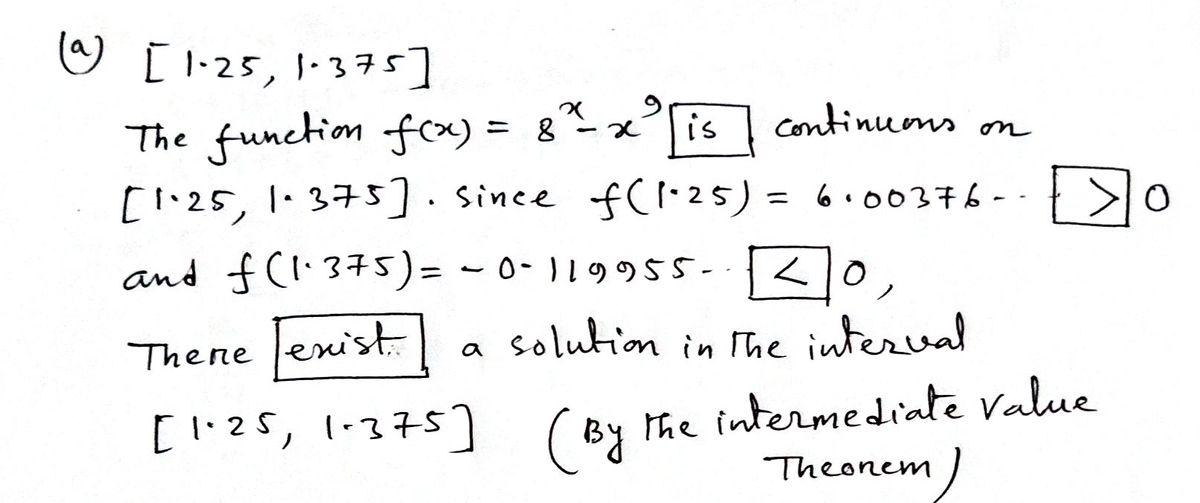 (a) [1.25, 1.375]
The function f(x) = 8^x - x^9 is continuous on
[1.25, 1.375]. since f(1.25) = 6.00376.. > 0
and f(1.375) = -0.119955.. < 0,
There exist. a solution in The interval
[1.25, 1.375] (By the intermediate value
Theorem)